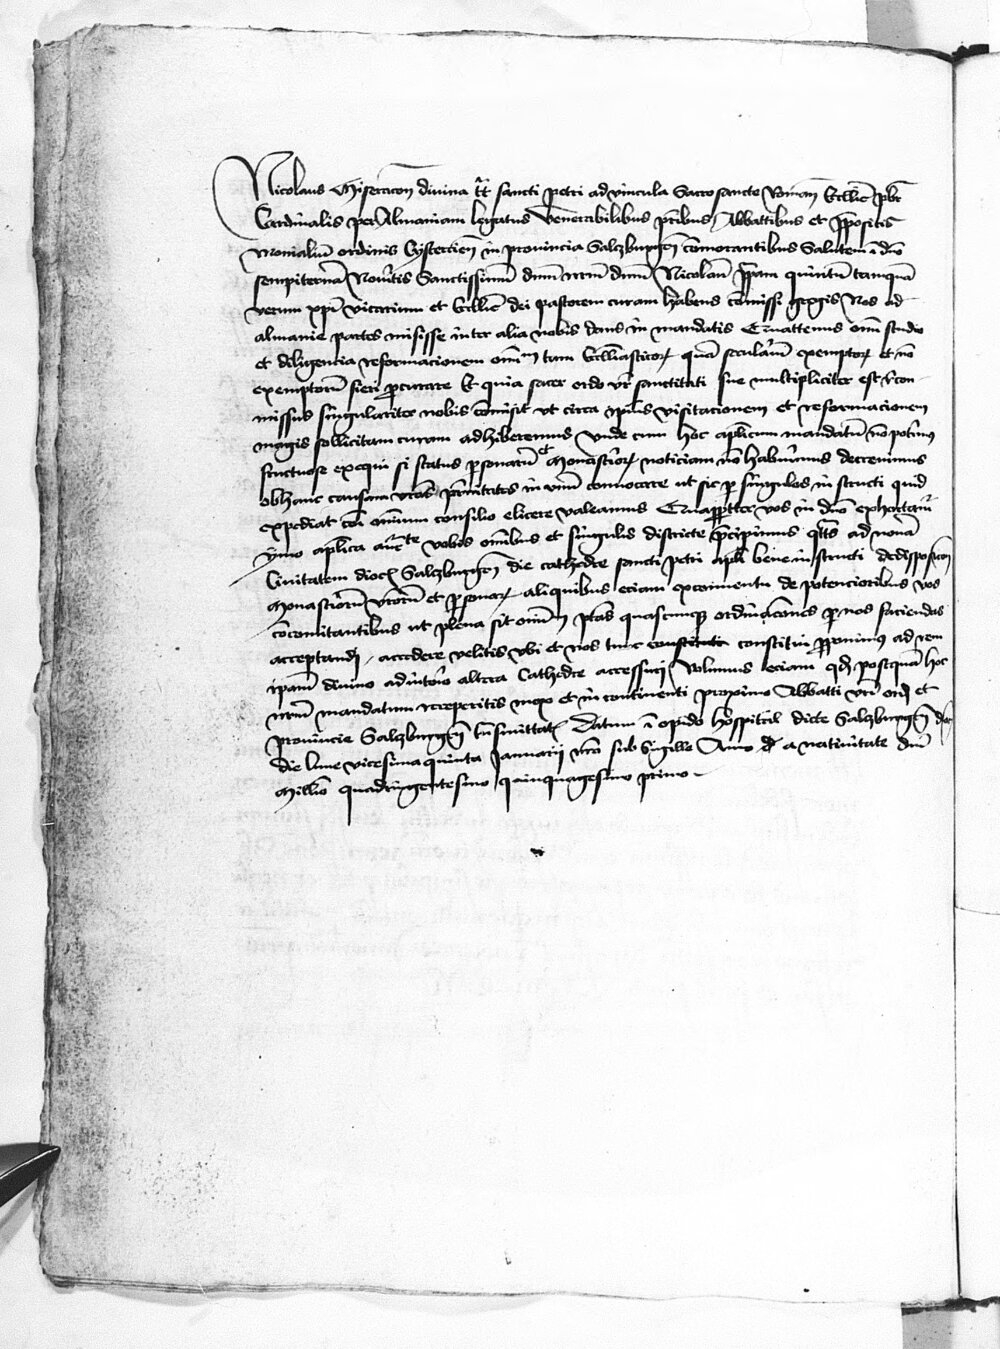 Nicolaus Miseracōn divina tt̄ sancti petri ad vincula Sacrosancte Romań Ecclie p̄br
Cardinalis per Almaniam legatus Venerabilibus pr̄ibus Abbattibus et p̄positis
Monialiū ordinis Cysterciēn in provincia Salzburgēn cōmorantibus Salutem ī dn̄o
sempiternā Noveritis Sanctissimū dnm̄ nr̄m dnm̄ Nicolaū p̄pam quintū tamquā
verum xp̄i vicarium et Ecclie dei pastorem curam habens cōmissi gregis Nos ad
almanie partes misisse inter alia nobis dans in mandatis Quattenus om̄i studio
et diligencia reformacionem om̄iū tam Ecclīasticoꝝ quā seculariū exemptoꝝ et nō
exemptorū fieri ꝓcurare Et quia sacer ordo vr̄ sanctitati sue multipliciter est recom
missus singulariter nobis cōmisit ut circa ip̄ius visitacionem et reformacionem
magis sollicitam curam adhiberemus Unde cum hoc ap̄licum mandatū nō potim9
fructuose exequi si status ꝑsonarū et Monastīoꝝ noticiam nō habuim9 decrevimus
ob hanc causam vr̄as p̄rnitates in unū convocare ut sic ꝑ singulos instructi quid
expediat cū om̄ium consilio elicere valeamus Quapropter vos in dn̄o exhortam̄
ymo ap̄lica auc̄te vobis om̄ibus et singulis districte p̄cipimus q̄ts ad novā
Civitatem dioc̄ Salzburgēn die cathedre sancti petri apl̄i bene instructi de disposicōn
Monastīorū vr̄orū et ꝑsonaꝝ aliquibus eciam conventu de potencioribus vos
cōcomitantibus ut plena sit om̄iū p̄tas quascumqꝫ ordinaciones ꝑ nos faciendas
acceptandi accedere velitis ubi et nos tunc constitute constitui ꝓponimus ad rem
ip̄am divino adiutorio altera Cathedre accessuri Volumus eciam qd̄ postquā hoc
nr̄m mandatum receperitis mox et incontinenti proximo Abbatti vr̄i ord̄ et
provincie Salzburgēn tn̄smittatis Datum ī opido hospital dicte Salzburgēn dioc̄
die lune vicesimaquinta Januarii nr̄o sub sigillo Anno a nativitate dn̄i
Millīo quadringentesimo quinquagesimo primo